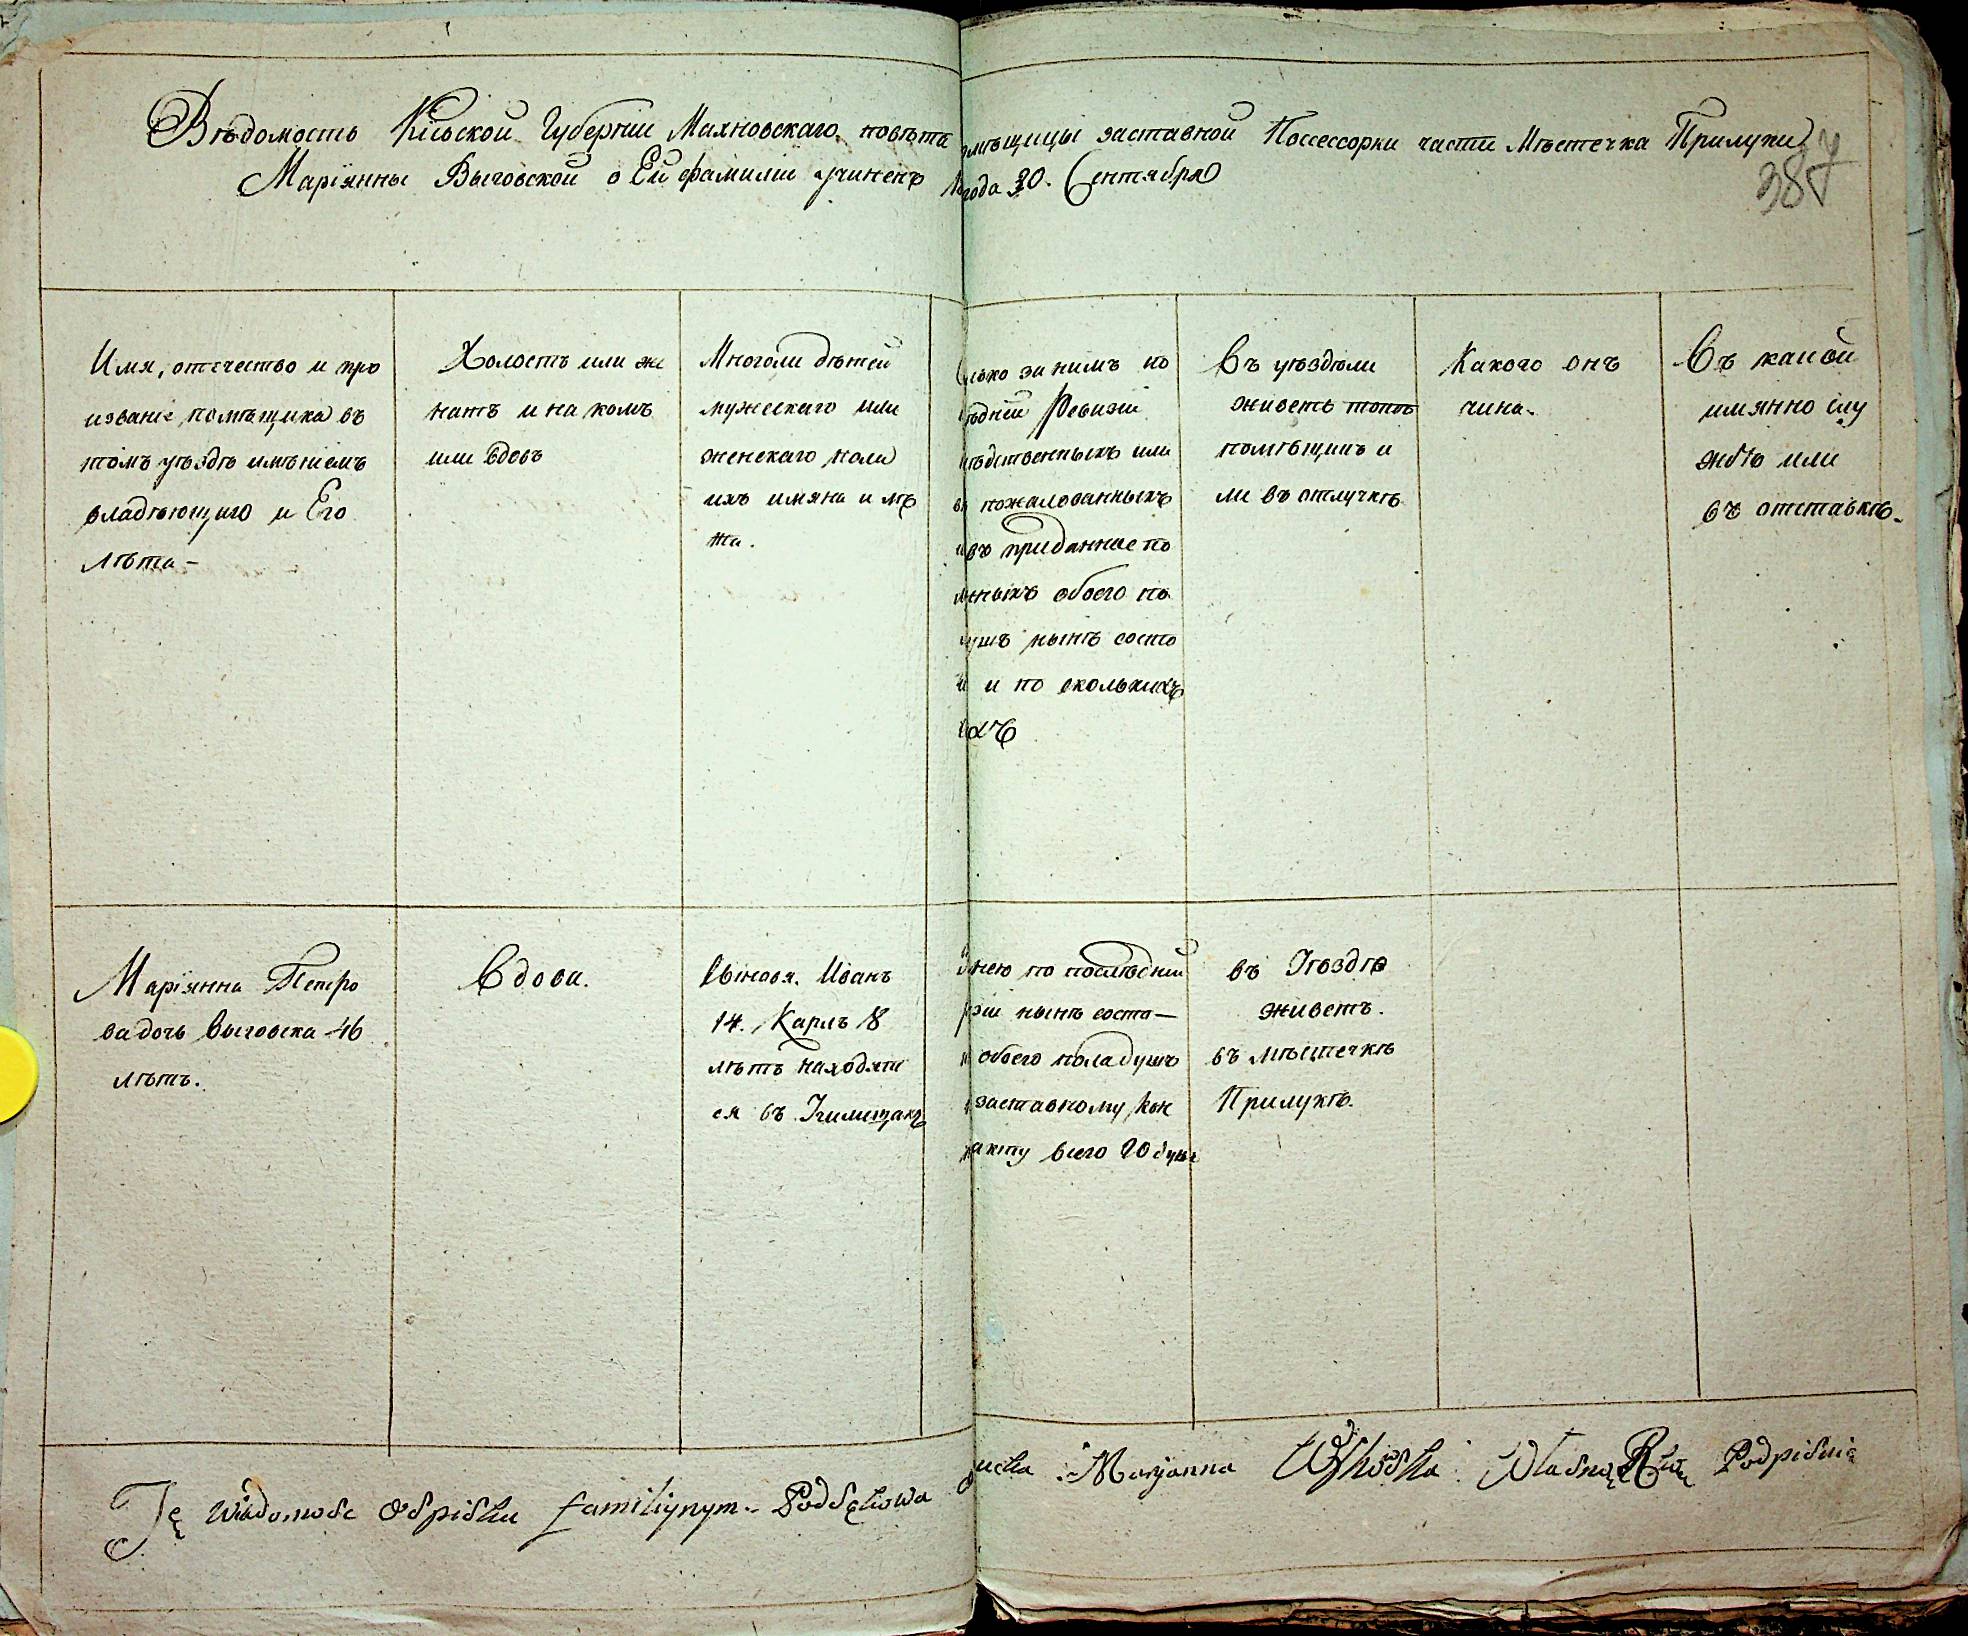 Вѣдомость Кіевской Губерніи Махновскаго повѣта помѣщицы заставной Поссессорки части Мѣстечка Прилуки
Маріянны Выговской о Ей фамиліи учинена года 30. Сентября
387
Имя, отечество и про
званіе помѣщика въ
томъ уѣздѣ имѣніемъ
владѣющиго и Его
лѣта –
Холостъ или же
натъ и на комъ
или вдовъ
Многоли дѣтей
мужескаго или
женскаго пола
ихъ имяна и лѣ
та.
лько за нимъ по
ѣдней Ревизіи
ѣдственныхъ или
пожалованныхъ
въ приданные по
нныхъ обоего по
ушъ нынѣ состо
и по сколькихъ
Въ уѣздѣли
живетъ тотъ
помѣщикъ и
ли въ отлучкѣ
Какого онъ
чина.
Въ какой
имянно слу
жбѣ или
въ отставкѣ.
Маріянна Петро
ва дочь Выговска 46
лѣтъ.
Вдова.
Сыновя. Иванъ
14. Карлъ 8
лѣтъ находят
ся въ
нею по послѣдней
зіи нынѣ состо–
обоего пола душъ
заставному кон
акту всего 20 душъ
въ Уѣздѣ
живетъ.
въ мѣстечкѣ
Прилукѣ.
Tę Wiadomosc Ospisku familiynym Podsękowa
Maryanna Wyhowska Własną Ręką Podpisuię